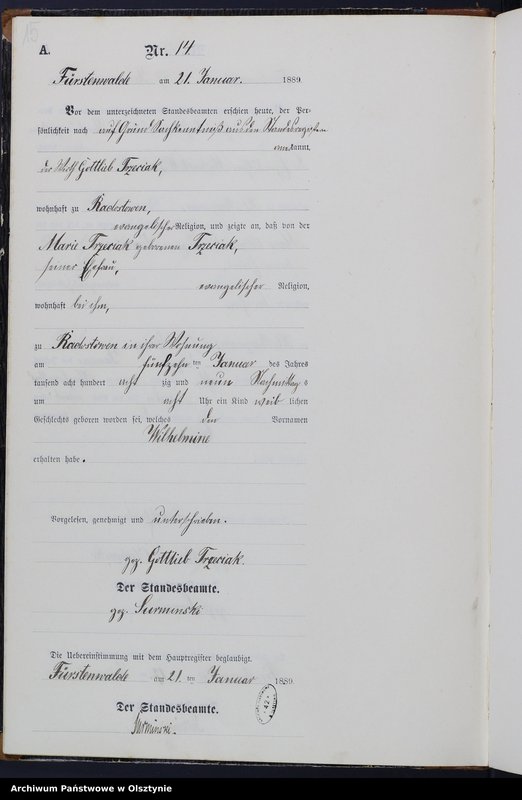 15
A.
Nr. 14
Fürstenwalde am 21. Januar. 1889.
Vor dem unterzeichneten Standesbeamten erschien heute, der Per-
sönlichkeit nach auf Grund Sachkenntniß aus den Standesregistern
anerkannt,
der Wirth Gottlieb Trzeciak,
wohnhaft zu Radostowen,
evangelischer Religion, und zeigte an, daß von der
Marie Trzeciak geborenen Trzeciak,
seiner Ehefrau,
evangelischer Religion,
wohnhaft bei ihm,
zu Radostowen in ihrer Wohnung
am fünfzehn ten Januar des Jahres
tausend acht hundert acht zig und neun Nachmittags
um acht Uhr ein Kind weib lichen
Geschlechts geboren worden sei, welches den Vornamen
Wilhelmine
erhalten habe.
Vorgelesen, genehmigt und unterschrieben.
gez. Gottlieb Trzeciak.
Der Standesbeamte.
gez. Surminski
Die Uebereinstimmung mit dem Hauptregister beglaubigt.
Fürstenwalde am 21. ten Januar 1889.
Der Standesbeamte.
Surminski.
Archiwum Państwowe w Olsztynie